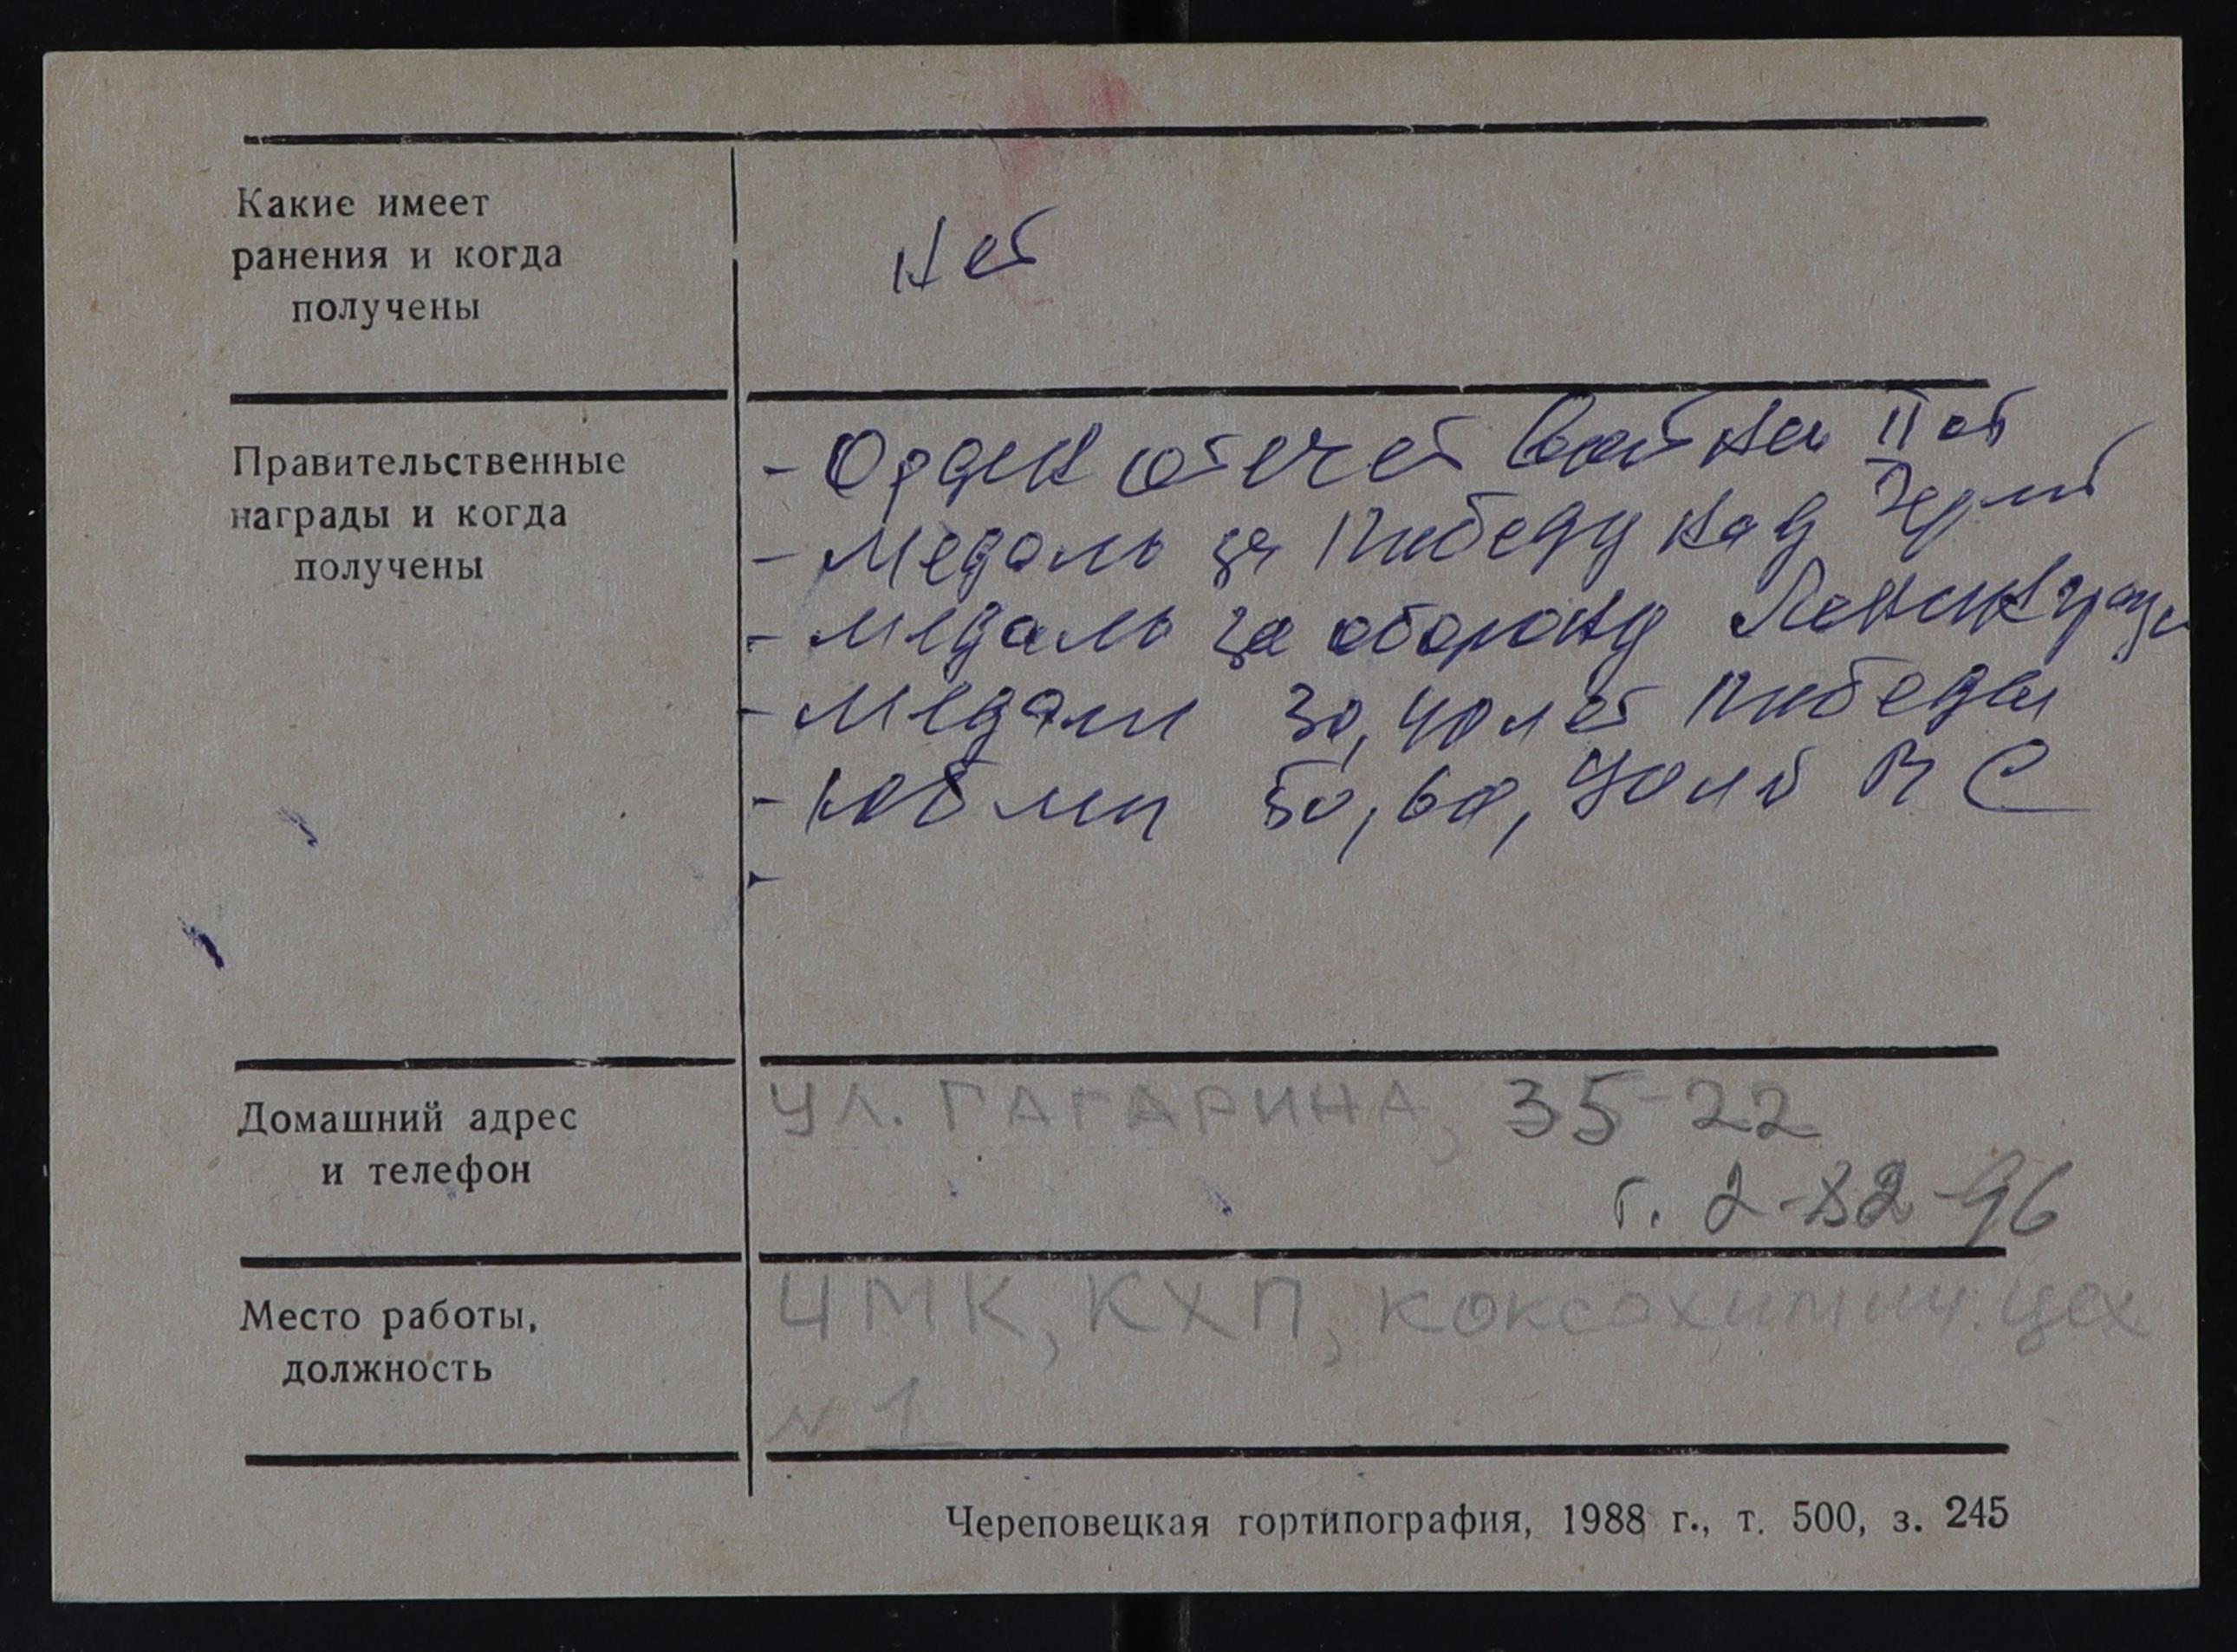 Какие имеет
ранения и когда
получены
Нет
Правительственные
награды и когда
получены
- Орден отечет войны II ст
- Медаль за Победу над Герм
- Медаль за оборону Ленинграда
- Медали 30, 40 лет Победы
- Юб ми 50, 60, 70 лет ВС
-
Домашний адрес
и телефон
УЛ. ГАГАРИНА, 35-22
т. 2-32-96
Место работы,
должность
ЧМК, КХП, коксохимич. цех
N 1
Череповецкая гортипография, 1988 г., т. 500, з. 245